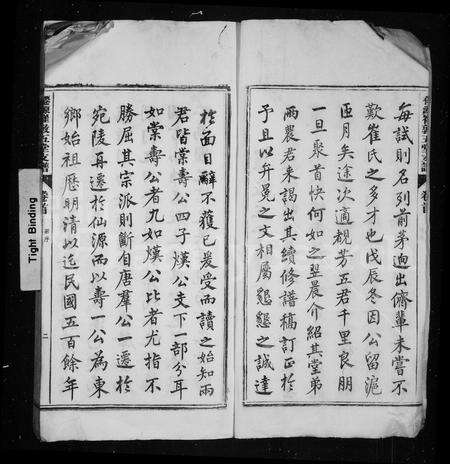 每試則名列前茅迥出儕輩未嘗不
歎崔氏之多才也戊辰冬因公留滬
匝月矣途次適覩芳五君千里良朋
一旦聚首快何如之翌晨介紹其堂弟
兩農君來謁出其續修譜稿訂正於
予且以弁冕之文相屬懇懇之誠達
於面目辭不獲已爰受而讀之始知雨
君皆棠壽公四子熯公支下一部分耳
如棠壽公者九如熯公比者尤指不
勝屈其宗派則斷自唐羣公一遷於
宛陵再遷於仙源而以壽一公為東
鄉始祖歷明清以迄民國五百餘年
卷首
二
Tight Binding